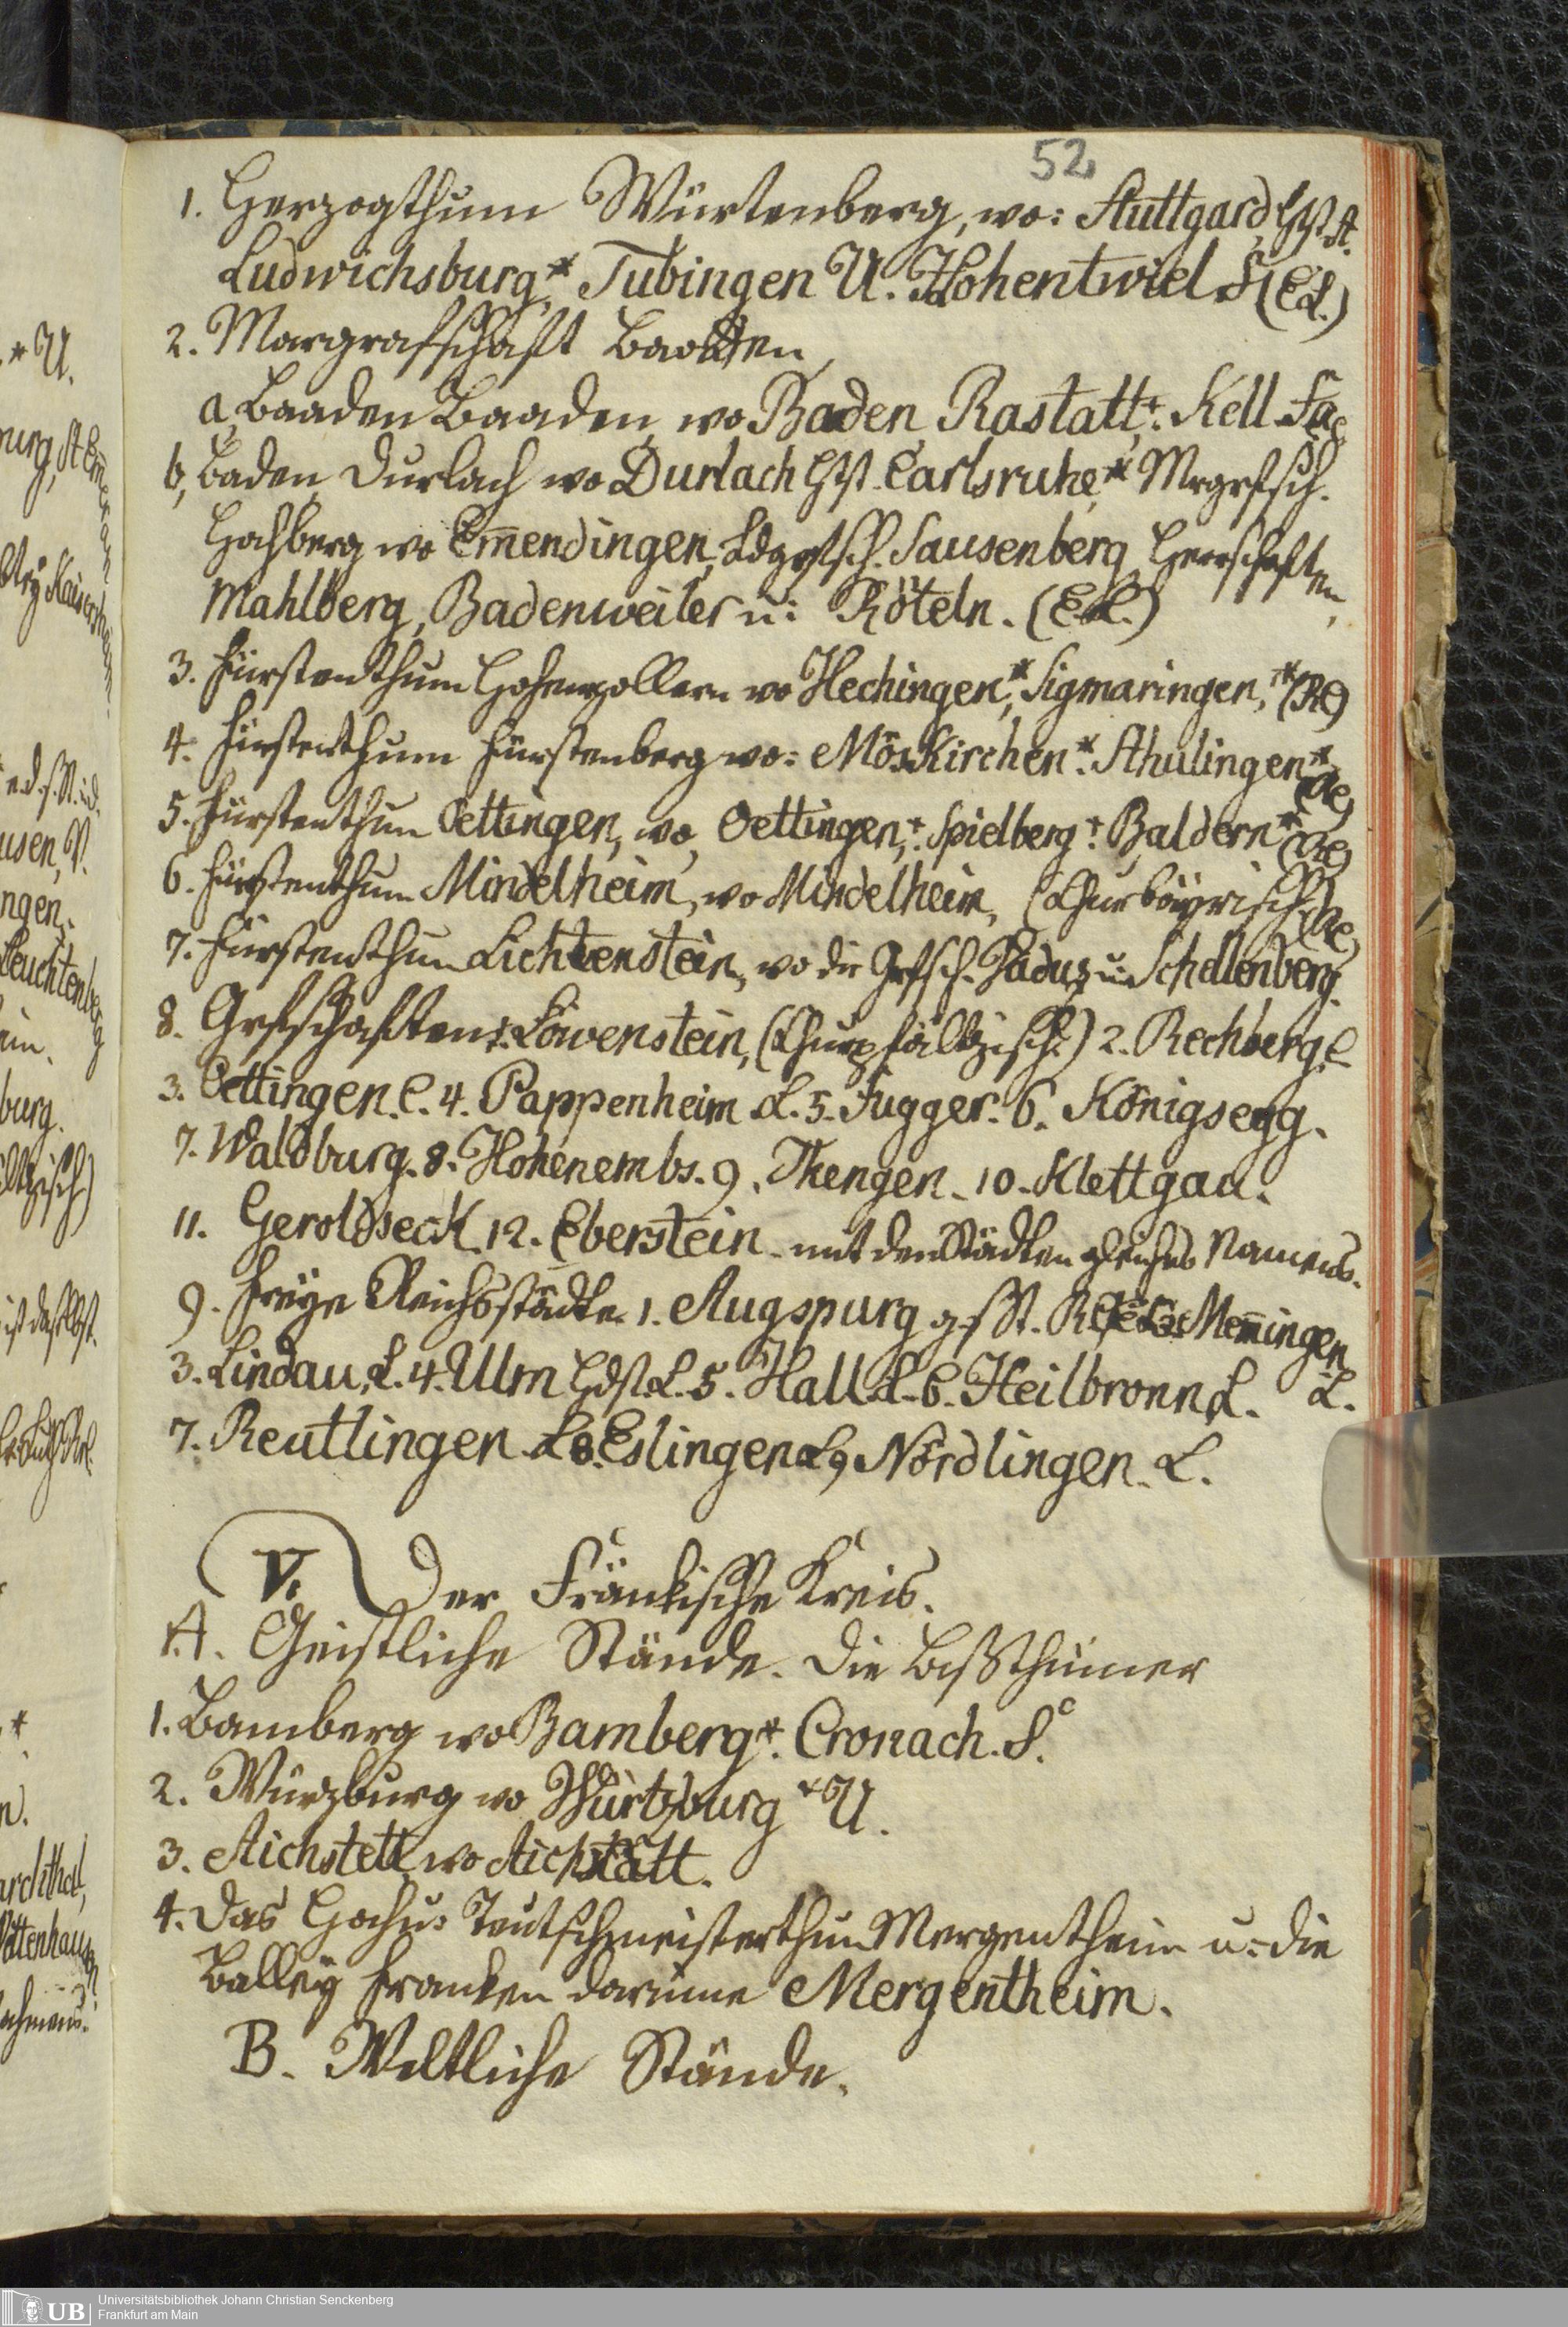 52
1. Herzogthum Würtenberg, wo: Stuttgard, HSt.
Ludwichsburg,* Tubingen U. Hohentwiel F (EL.)
2. Margrafschaft Baaden,
a, Baaden Baaden, wo Baden, Rastatt,*. Kell F
b, Baden Durlach wo Durlach HSt. Carlsruhe,* Mrgrfsch.
Hochberg wo Em̄endingen, Ldgrfsch. Sausenberg, Herrschaften,
Mahlberg, Badenweiler u: Röteln. (EL.)
3. Fürstenthum Hohenzollern wo Hechingen,* Sigmaringen,* (Re)
4. Fürstenthum Fürstenberg wo: Möskirchen*. Sthulingen* (Re)
5. Fürstenthum Oettingen, wo, Oettingen,*. Spielberg*. Baldern* (Re)
6. Fürstenthum Mindelheim, wo Mindelheim, (Churbäyrisch) (Re)
7. Fürstenthum Lichtenstein, wo die Grfsch. Vaduz u: Schellenberg.
8. Grfschaften: 1. Löwenstein, (Churpfältzisch) 2. Rechberg. C.
3. Oettingen. C. 4. Pappenheim L. 5. Fugger. 6. Königsegg.
7. Waldburg. 8. Hohenembs. 9. Thengen. 10. Klettgau.
11. Geroldseck. 12. Eberstein mit den Städten gleiches Namens.
9. Freÿe Reichsstädte. 1. Augspurg Mem̄ingen
3. Lindau, L. 4. Ulm L. 5. Hall L. 6. Heilbronn L. L.
7. Reutlingen L 8. Eslingen L 9 Nördlingen. L.
V. Der Fränkische Kreis.
A. Geistliche Stände. Die Bißthümer
1. Bamberg wo Bamberg*. Cronach. F.
2. Würzburg wo Würtzburg *U.
3. Aichstett, wo Aichstätt.
4. Das Hochu: Teutschmeisterthum Mergentheim u: die
Balley Franken darinne Mergentheim.
B. Weltliche Stände.
UB Universitätsbibliothek Johann Christian Senckenberg
Frankfurt am Main